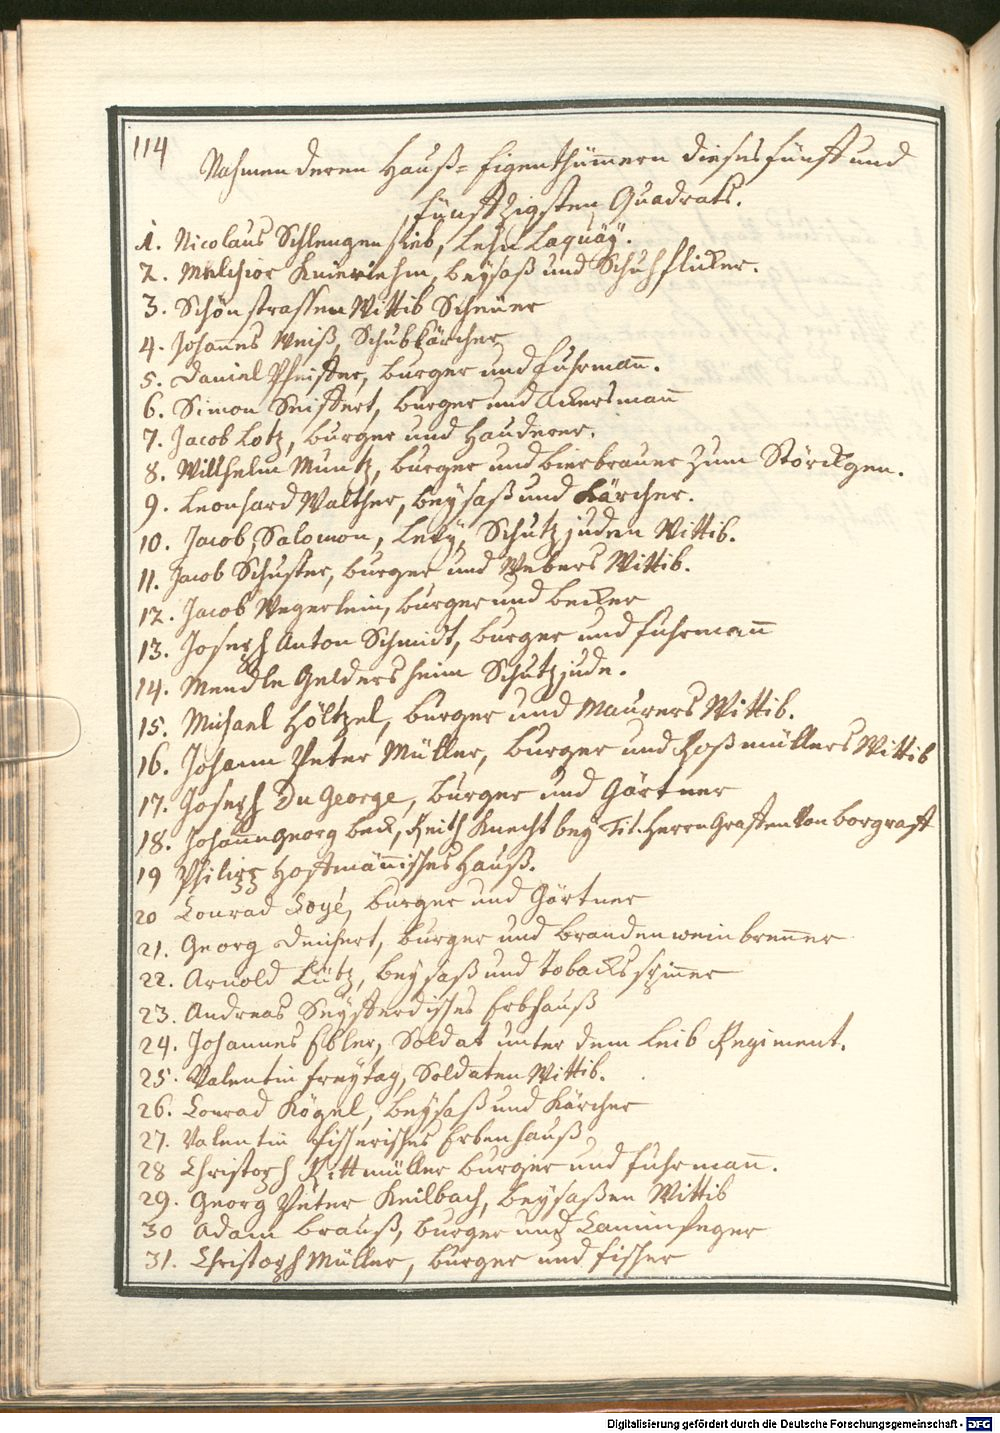 114
Nahmen deren Hauß-Eigenthümern dieses fünff und
fünffzigsten Quadrats.
1. Nicolaus Schlengenstieb, Lehn Laquäÿ.
2. Melchior Knieriehm, beysaß und Schuhflicker.
3. Schönstrassen Wittib Scheüer
4. Johannes Weiß, Schubkärcher
5. Daniel Pfeiffer, burger und fuhrmañ.
6. Simon Seiffert, burger und Ackersmañ
7. Jacob Lotz, burger und Hauderer.
8. Willhelm Muntz, burger und bierbrauer zum Störckgen.
9. Leonhard Walther, beysaß und Kärcher.
10. Jacob, Salomon, Levy, Schutzjuden Wittib.
11. Jacob Schuster, burger und Webers Wittib.
12. Jacob Wegerlein, burger und becker
13. Joseph Anton Schmidt, burger und fuhrmañ
14. Mendle Geldersheim Schutzjude.
15. Michael Höltzel, burger und Maurers Wittib.
16. Johann Peter Müller, burger und Roßmüllers Wittib
17. Joseph Du George, burger und Gärtner
18. Johañ Georg beck, Reith Knecht bey Tit. Herrn Graffen von borgraff
19 Philipp Hoffmäñisches Hauß.
20 Conrad Loyé, burger und Gärtner
21. Georg Deufert, burger und brandenweinbreñer
22. Arnold Lütz, beysaß und Tobacksspiñer
23. Andreas Seyfferdisches Erbhauß
24. Johannes Ebler, Soldat unter dem Leib Regiment.
25. Valentin freytag, Soldaten Wittib.
26. Conrad Kögel, beysaß und Kärcher
27. Valentin fischerisches Erbenhauß
28 Christoph Rittmüller burger und fuhrmañ.
29. Georg Peter Keilbach, beysaßen Wittib
30 Adam brauß, burger und Caminfeger
31. Christoph Müller, burger und fischer
Digitalisierung gefördert durch die Deutsche Forschungsgemeinschaft - DFG